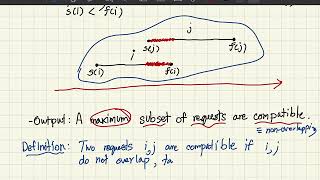 s(i) < f(i)
j
s(j) f(j)
i
s(i) f(i)
-Output: A maximum subset of requests are compatible.
≡ non-overlapping
Definition: Two requests i,j are compatible if i,j
do not overlap, ta